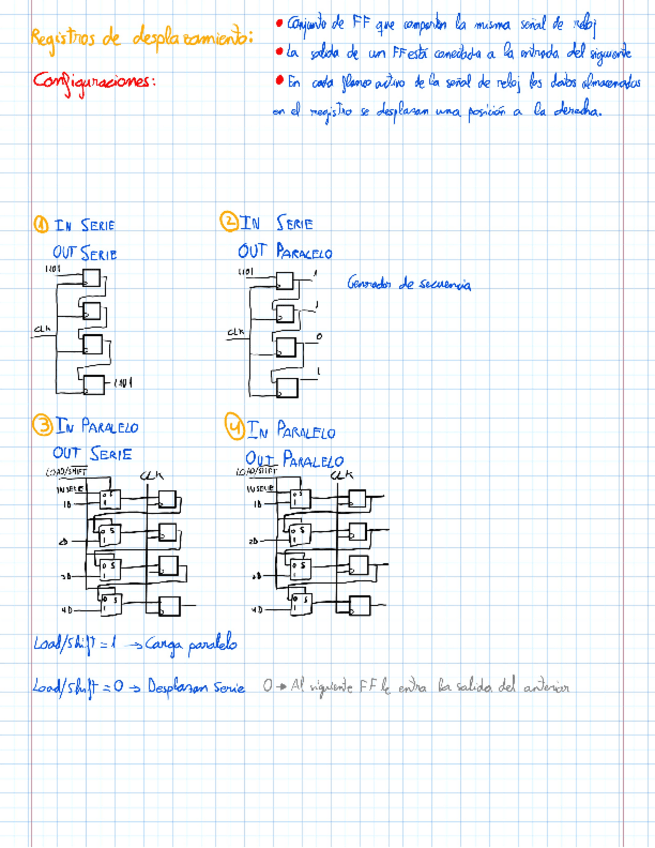 Registros de desplazamiento:
• Conjunto de FF que comparten la misma señal de reloj
• La salida de un FF está conectada a la entrada del siguiente
Configuraciones:
• En cada flanco activo de la señal de reloj los datos almacenados
en el registro se desplazan una posición a la derecha.
① IN SERIE
OUT SERIE
1101
CLK
1101
② IN SERIE
OUT PARALELO
1101
CLK
1
1
0
1
Generador de secuencia
③ IN PARALELO
OUT SERIE
LOAD/SHIFT
CLK
IN SERIE
1D
2D
3D
4D
0 S
1
0 S
1
0 S
1
0 S
1
④ IN PARALELO
OUT PARALELO
LOAD/SHIFT
CLK
IN SERIE
1D
2D
3D
4D
0 S
1
0 S
1
0 S
1
0 S
1
Load/Shift = 1 → Carga paralelo
Load/Shift = 0 → Desplazan Serie 0 → Al siguiente FF le entra la salida del anterior